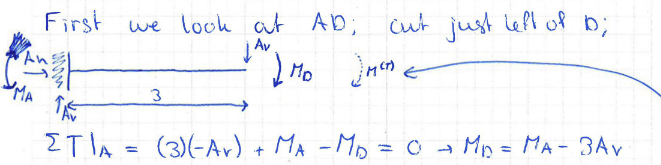 First we look at AD; cut just left of D;
Ah
Av
MA
MD
M(T)
Av
3
ΣT|A = (3)(-Av) + MA - MD = 0 → MD = MA - 3Av